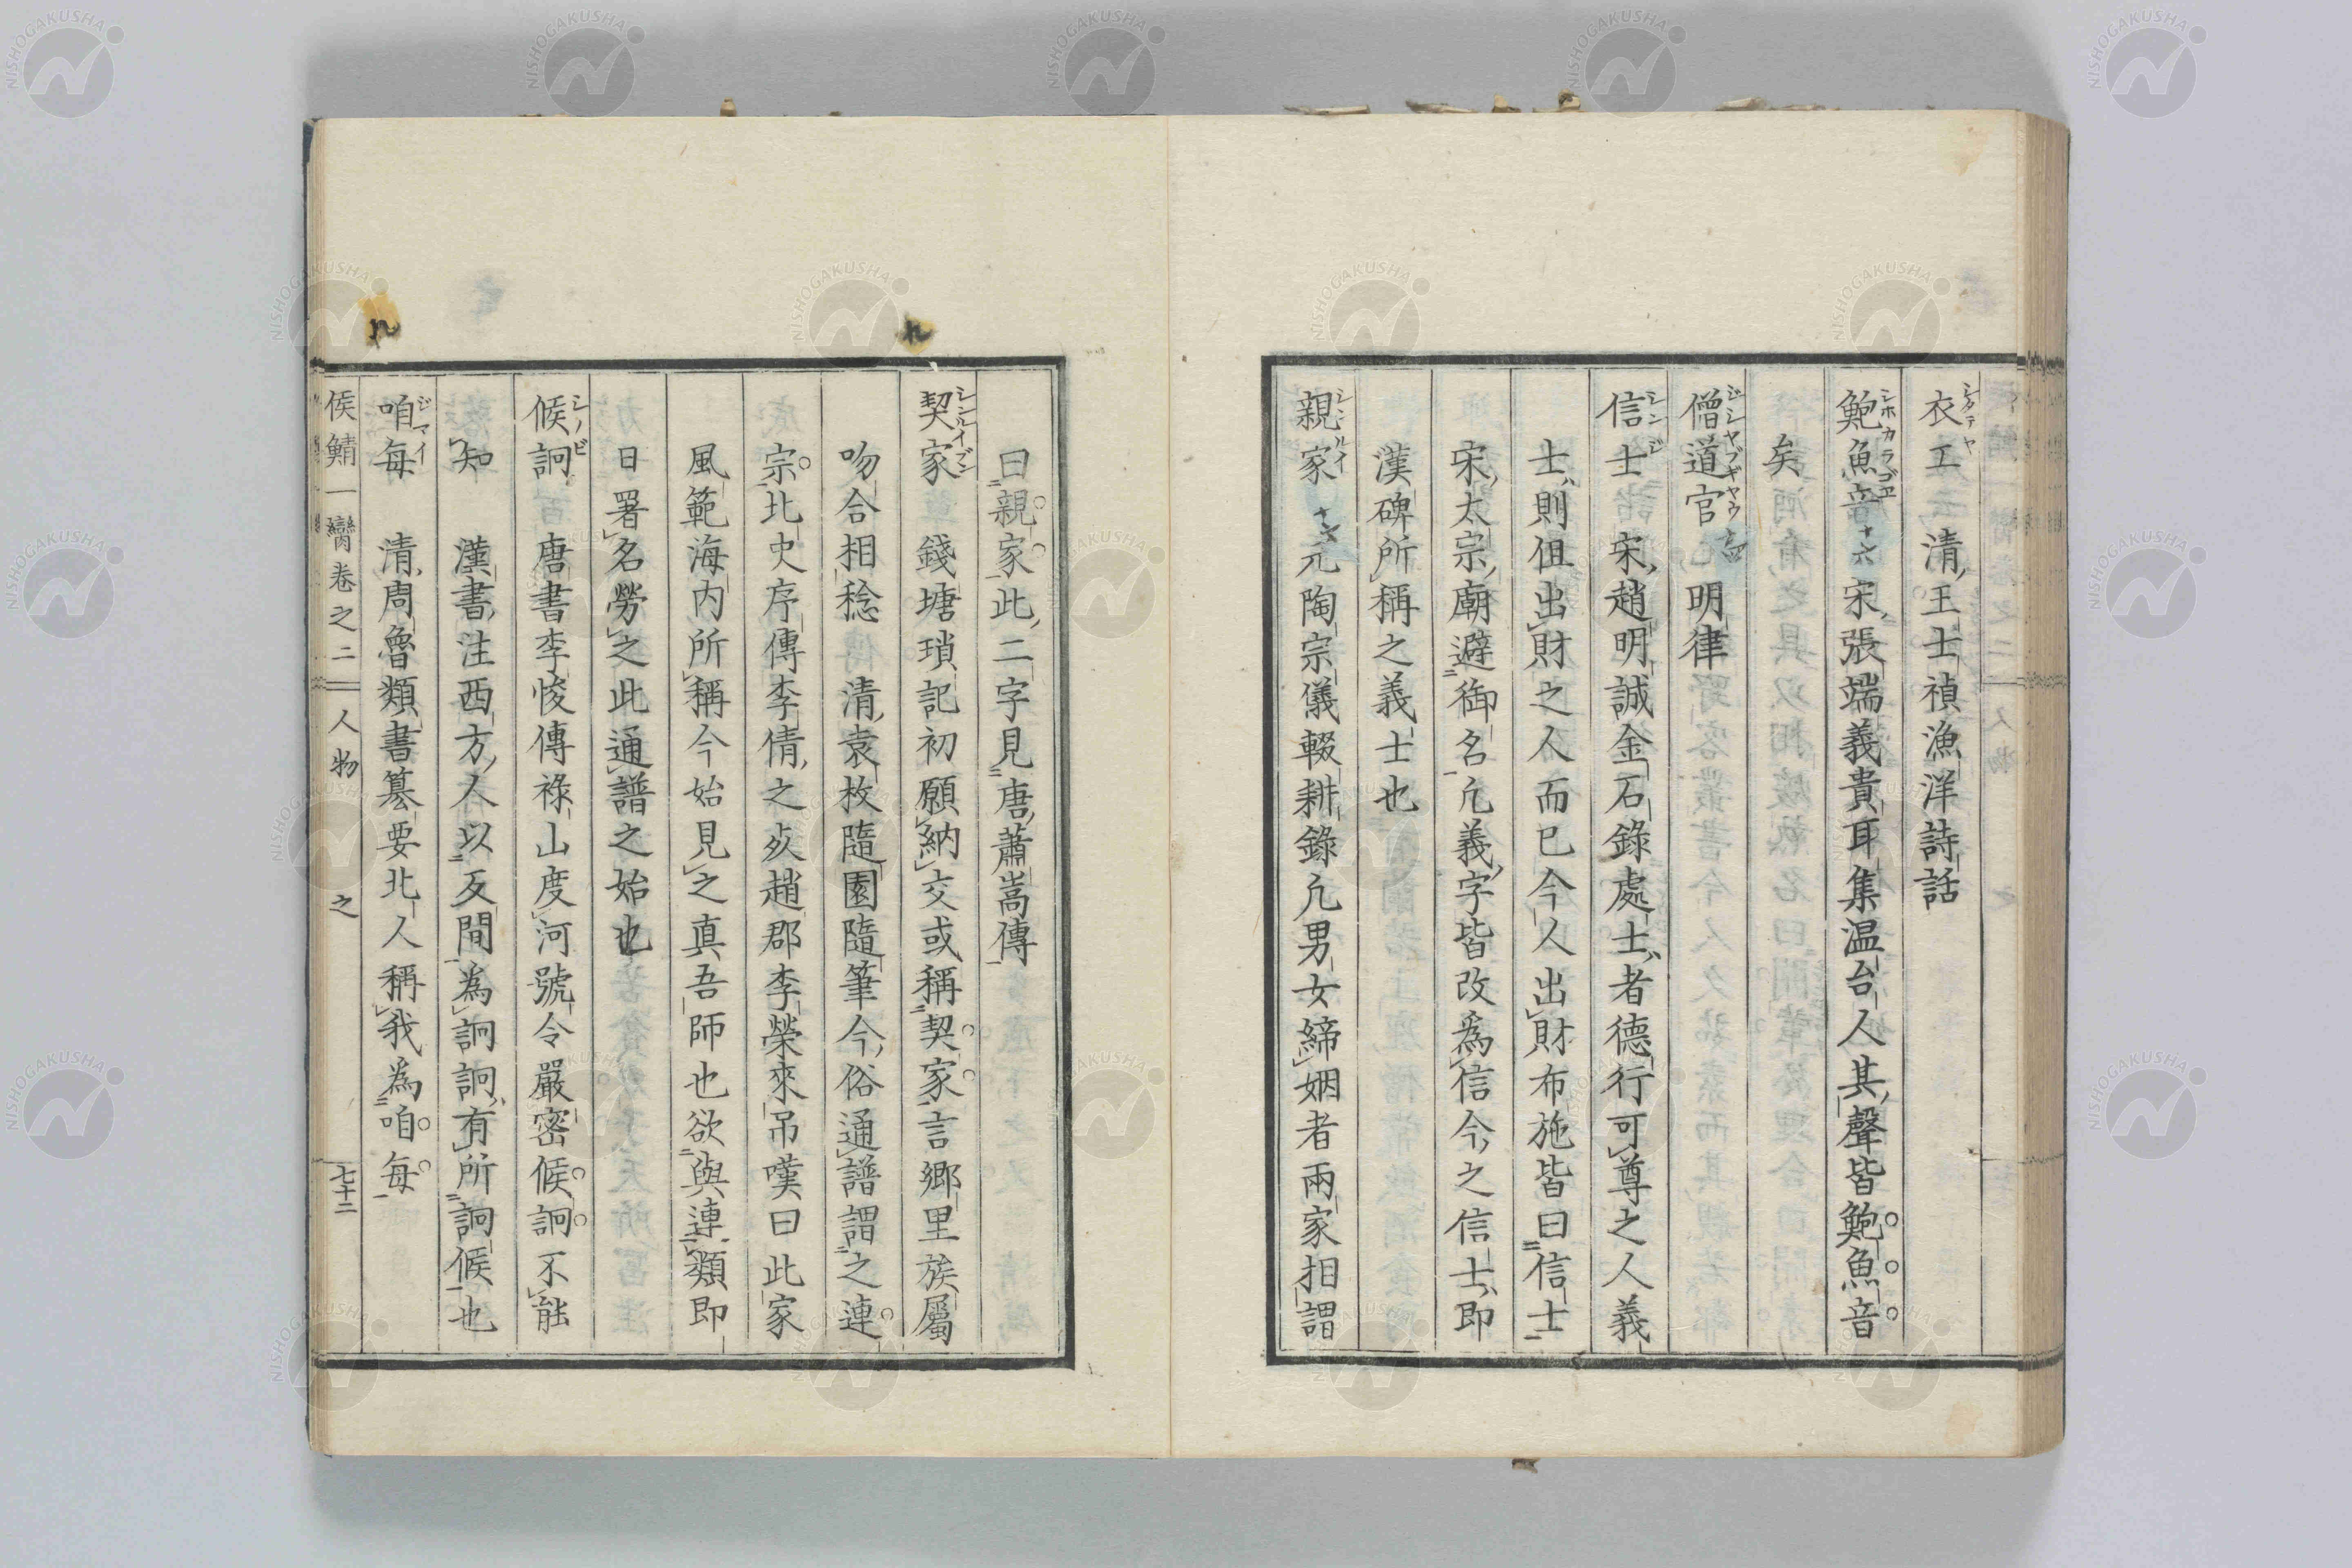 衣工　清王士禎漁洋詩話
シタテヤ
鮑魚音　十六　宋張端義貴耳集温台人其聲皆鮑魚音
シホカラゴエ
矣
僧道官　明律
ジシヤブギヤウ
信士　宋趙明誠金石錄處士者德行可尊之人義
シンジ
士則但出財之人而已今人出財布施皆曰信士
宋太宗廟避御名凢義字皆改爲信今之信士即
漢碑所稱之義士也
親家　十六　元陶宗儀輟耕錄凢男女締姻者兩家相謂
シンルイ
曰親家此二字見唐蕭嵩傳
契家　錢塘瑣記初願納交或稱契家言鄉里族屬
シンルイブン
吻合相稔　清袁枚隨園隨筆今俗通譜謂之連
宗北史序傳李倩之㱙趙郡李榮來吊嘆曰此家
風範海内所稱今始見之真吾師也欲與連類即
日署名勞之此通譜之始也
候詗　唐書李悛傳祿山度河號令嚴密候詗不能
シノビ
知　漢書注西方人以反間為詗詗有所詗候也
咱每　清周魯類書纂要北人稱我為咱每
ジマイ
侯鯖一臠卷之二　人物　之　七十二
NISHOGAKUSHA